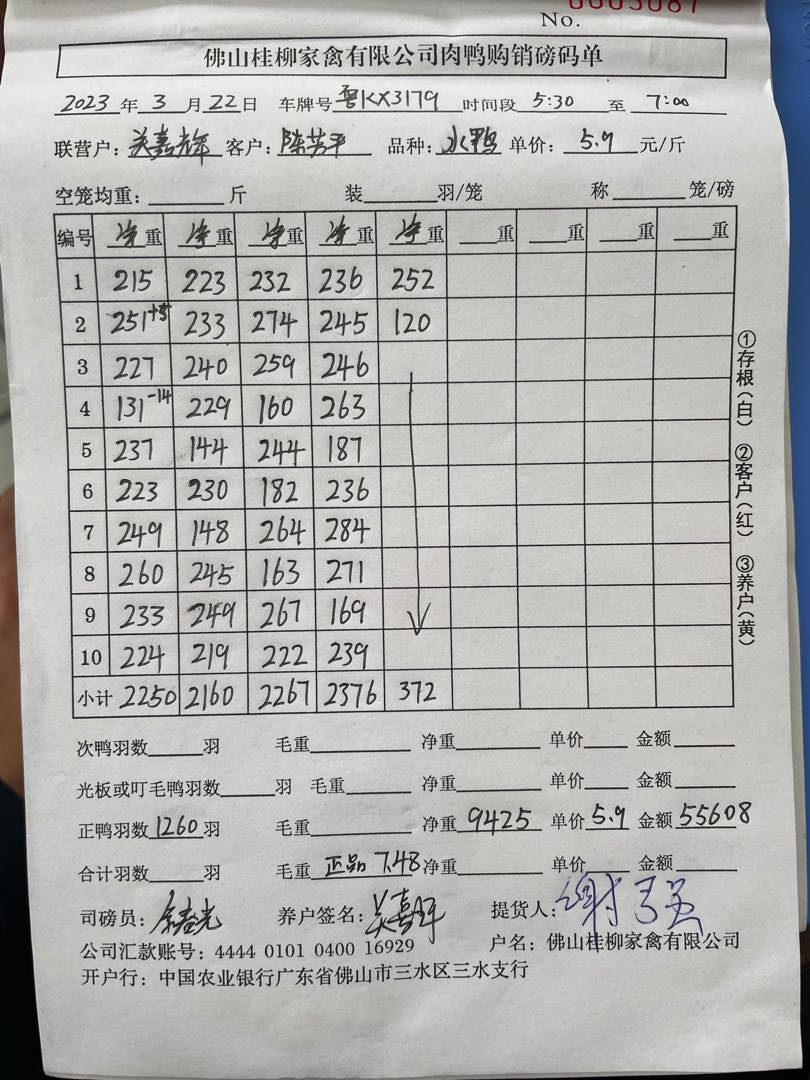 No. 0003087
佛山桂柳家禽有限公司肉鸭购销磅码单
2023 年 3 月 22 日 车牌号 粤KX3179 时间段 5:30 至 7:00
联营户: 关嘉辉 客户: 陈芳平 品种: 水鸭 单价: 5.9 元/斤
空笼均重: 斤 装 羽/笼 称 笼/磅
编号 净重 净重 净重 净重 净重 重 重 重 重
1 215 223 232 236 252
2 251+5 233 274 245 120
3 227 240 259 246
4 131-14 229 160 263
5 237 144 244 187
6 223 230 182 236
7 249 148 264 284
8 260 245 163 271
9 233 249 267 169
10 224 219 222 239
小计 2250 2160 2267 2376 372
①存根(白) ②客户(红) ③养户(黄)
次鸭羽数 羽 毛重 净重 单价 金额
光板或叮毛鸭羽数 羽 毛重 净重 单价 金额
正鸭羽数 1260 羽 毛重 净重 9425 单价 5.9 金额 55608
合计羽数 羽 毛重 正品 7.48 净重 单价 金额
司磅员: 养户签名: 关嘉辉 提货人:
公司汇款账号: 4444 0101 0400 16929 户名: 佛山桂柳家禽有限公司
开户行: 中国农业银行广东省佛山市三水区三水支行